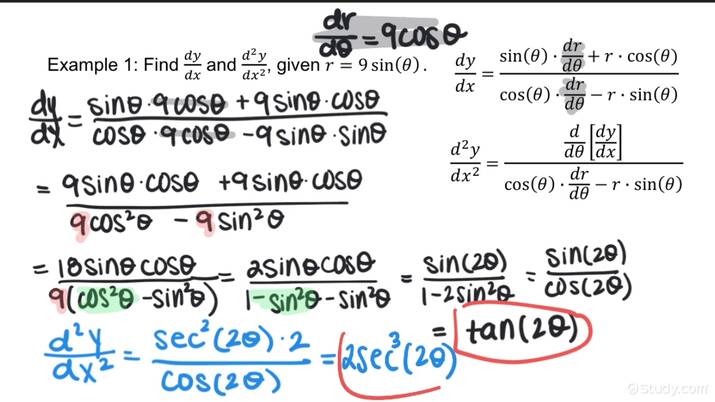 dr/dθ = 9cosθ
Example 1: Find dy/dx and d²y/dx², given r = 9 sin(θ).
dy/dx = (sin(θ) · dr/dθ + r · cos(θ)) / (cos(θ) · dr/dθ − r · sin(θ))
dy/dx = (sinθ · 9cosθ + 9sinθ · cosθ) / (cosθ · 9cosθ − 9sinθ · sinθ)
d²y/dx² = (d/dθ [dy/dx]) / (cos(θ) · dr/dθ − r · sin(θ))
= (9sinθ · cosθ + 9sinθ · cosθ) / (9cos²θ − 9sin²θ)
= 18sinθcosθ / 9(cos²θ − sin²θ) = 2sinθcosθ / (1 − sin²θ − sin²θ) = sin(2θ) / (1 − 2sin²θ) = sin(2θ) / cos(2θ)
= tan(2θ)
d²y/dx² = (sec²(2θ) · 2) / cos(2θ) = 2sec³(2θ)
Study.com